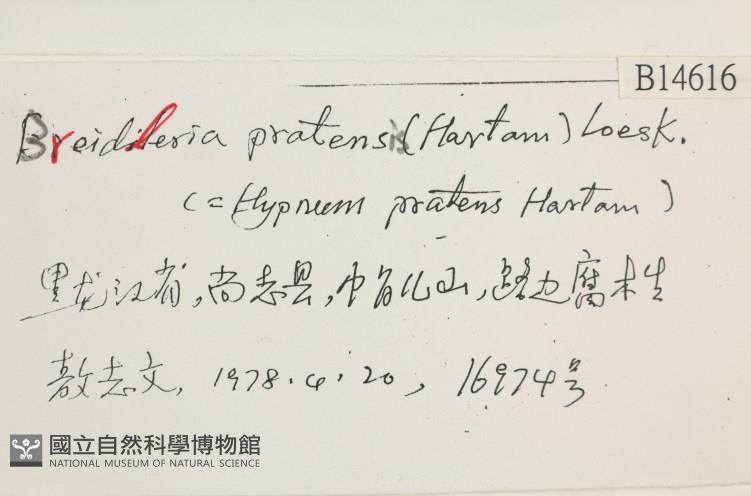 B14616
Breidleria pratensis (Hartam) Loesk.
(= Hypnum pratens Hartam)
黑龙江省,尚志县,帽儿山,路边腐木生
敖志文, 1978.4.20, 16974号
國立自然科學博物館
NATIONAL MUSEUM OF NATURAL SCIENCE